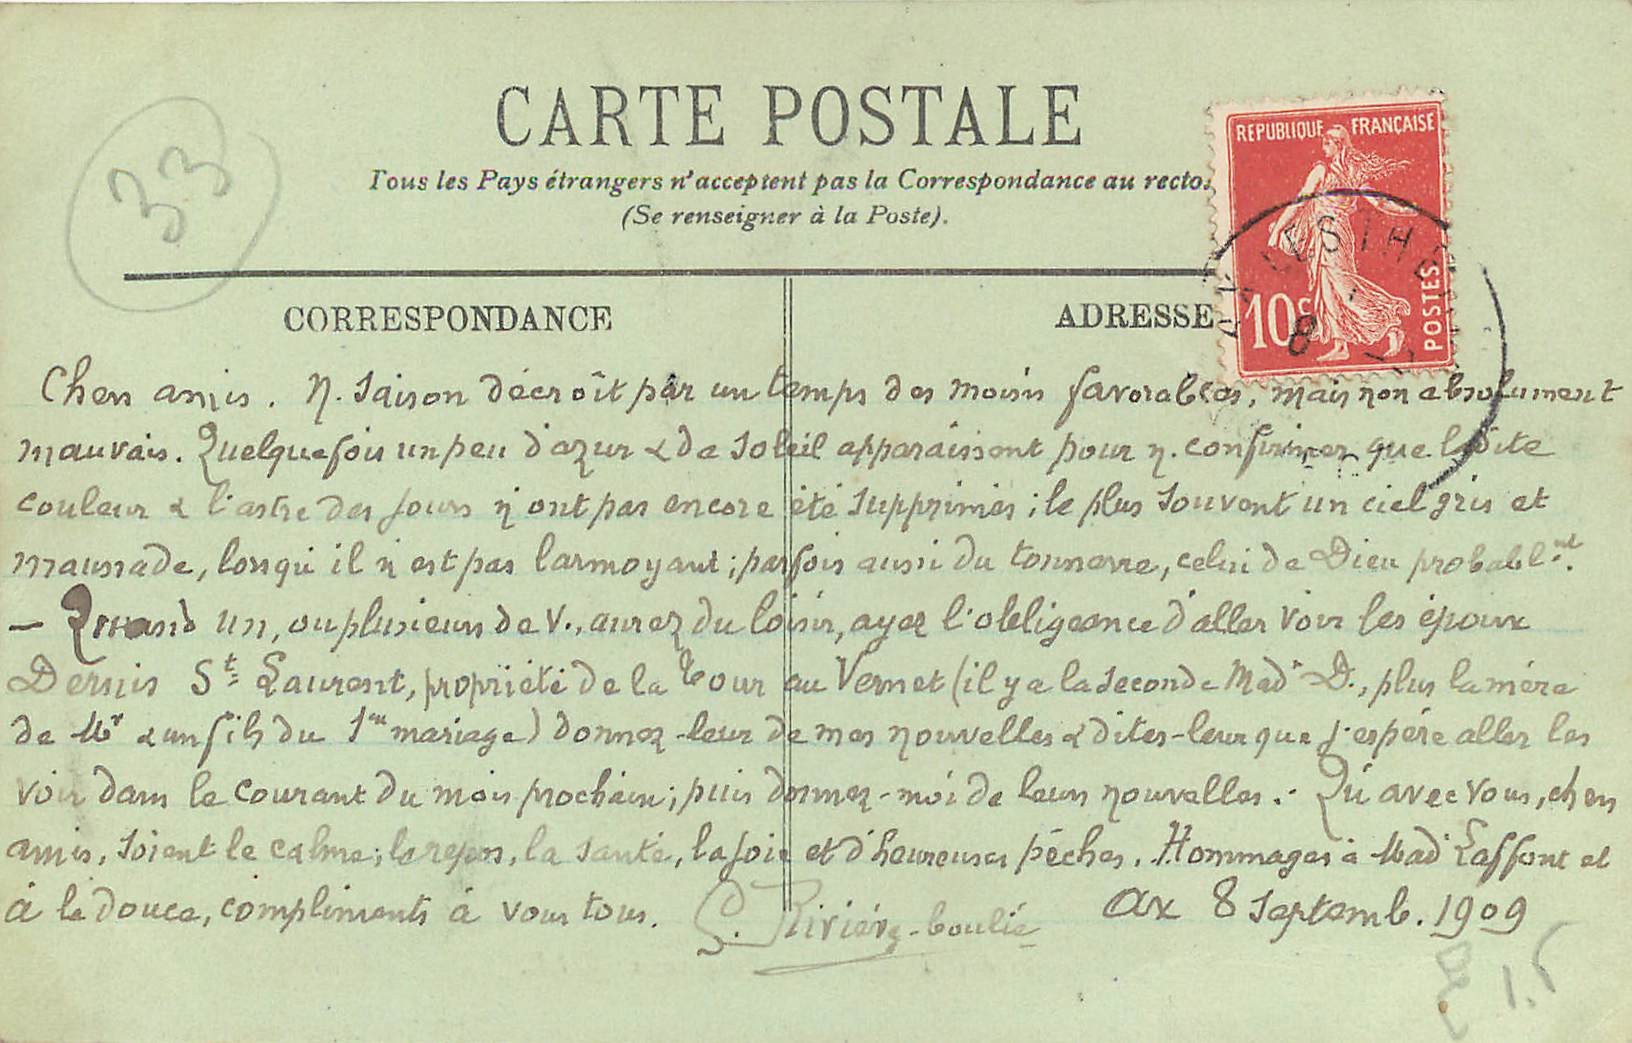 33
CARTE POSTALE
Tous les Pays étrangers n'acceptent pas la Correspondance au recto.
(Se renseigner à la Poste).
REPUBLIQUE FRANÇAISE
10c POSTES
8
CORRESPONDANCE
ADRESSE
Chers amis. N. saison décroît par un temps des moins favorables, mais non absolument
mauvais. Quelquefois un peu d'azur & de soleil apparaissent pour n. confirmer que ladite
couleur & l'astre des jours n'ont pas encore été supprimés ; le plus souvent un ciel gris et
maussade, lorsqu'il n'est pas larmoyant ; parfois aussi du tonnerre, celui de Dieu probablnt.
— Quand un, ou plusieurs de v., aurez du loisir, ayez l'obligeance d'aller voir les époux
Dernis St Laurent, propriété de la Tour au Vernet (il y a la seconde Made D., plus la mère
de Mr & un fils du 1er mariage) donnez-leur de mes nouvelles & dites-leur que j'espère aller les
voir dans le courant du mois prochain ; puis donnez-moi de leurs nouvelles. - Qu'avec vous, chers
amis, soient le calme, le repos, la santé, la joie et d'heureuses pêches. Hommages à Made Laffont et
à la douce, compliments à vous tous.
Rivière-boulié
Ax 8 Septemb. 1909